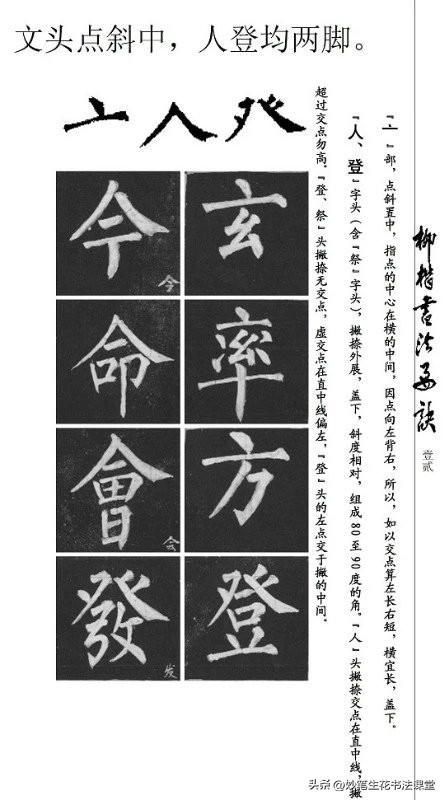 文头点斜中，人登均两脚。
亠人癶
柳楷书法要诀
壹贰
『亠』部，点斜置中，指点的中心在横的中间，因点向左背右，所以，如以交点算左长右短，横宜长，盖下。
『人、登』字头（含『祭』字头），撇捺外展，盖下，斜度相对，组成80至90度的角。『人』头撇捺交点在直中线，撇
超过交点勿高。『登、祭』头撇捺无交点，虚交点在直中线偏左，『登』头的左点交于撇的中间。
玄
率
方
登
今
今
命
會
会
發
发
头条@妙笔生花书法课堂